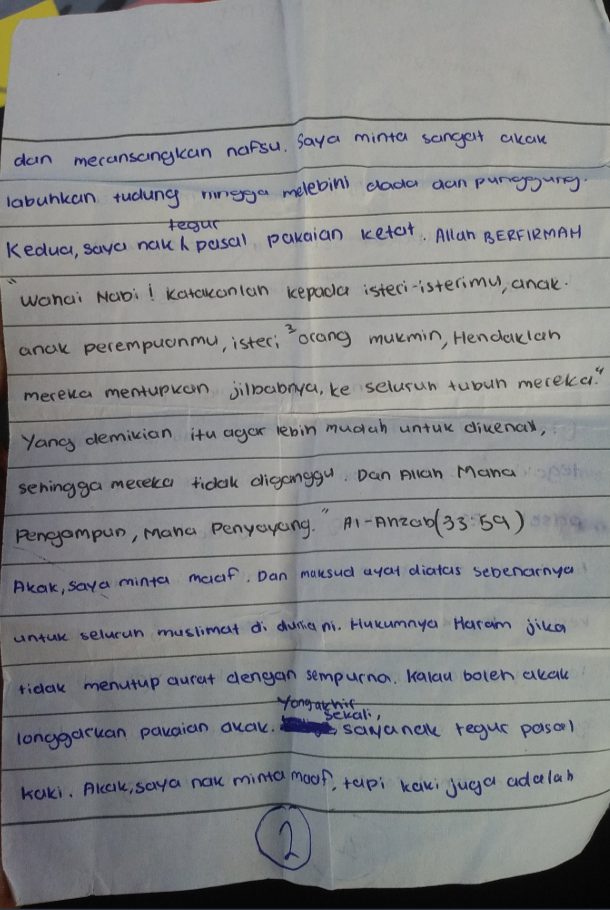 dan meransangkan nafsu. Saya minta sangat akak
labuhkan tudung hingga melebihi dada dan punggung.
tegur
Kedua, saya nak ʌ pasal pakaian ketat. Allah BERFIRMAH
"Wahai Nabi! Katakanlah kepada isteri-isterimu, anak-
anak perempuanmu, isteri ³ orang mukmin, Hendaklah
mereka mentupkan jilbabnya, ke seluruh tubuh mereka."
Yang demikian itu agar lebih mudah untuk dikenali,
sehingga mereka tidak diganggu. Dan Allah Maha
Pengampun, Maha Penyayang." Al-Ahzab(33:59)
Akak, saya minta maaf. Dan maksud ayat diatas sebenarnya
untuk seluruh muslimat di dunia ni. Hukumnya Haram jika
tidak menutup aurat dengan sempurna. Kalau boleh akak
Yang akhir
sekali,
longgarkan pakaian akak. saya nak tegur pasal
kaki. Akak, saya nak minta maaf, tapi kaki juga adalah
2